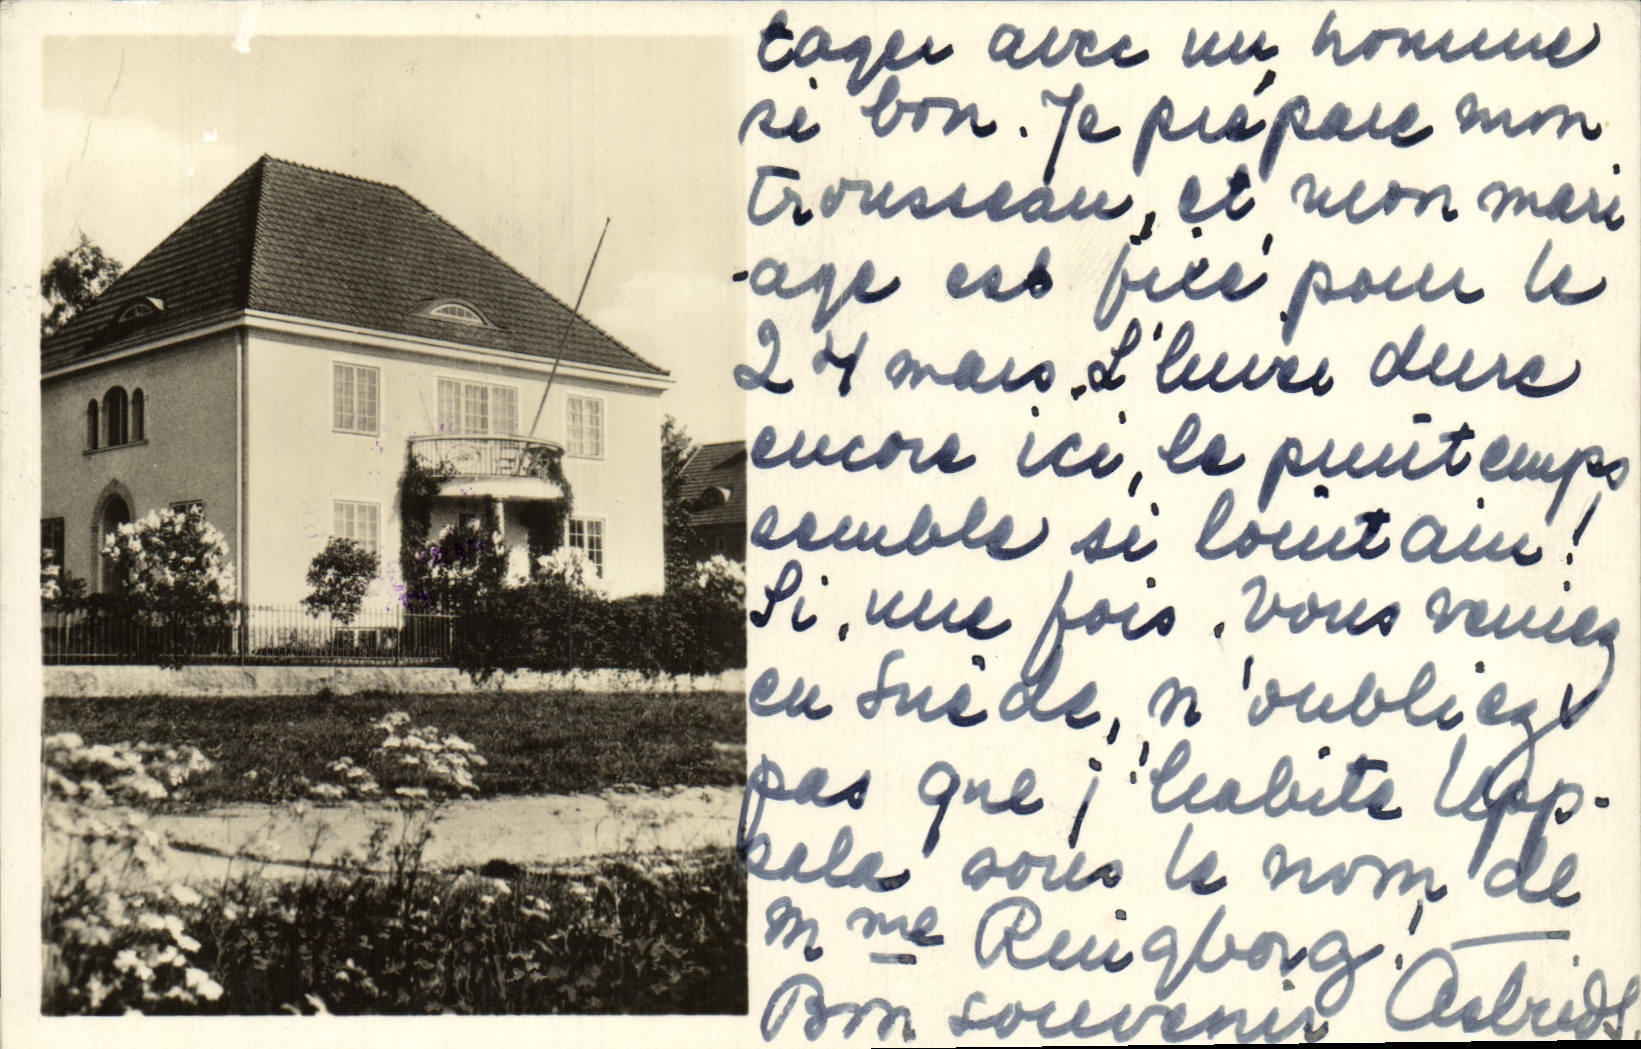 tager avec un homme
si bon. Je prépare mon
trousseau, et mon mari
-age est fixé pour le
24 mars. L'hiver dure
encore ici, le printemps
semble si lointain!
Si, une fois, vous veniez
en Suède, n'oubliez
pas que j'habite Upp-
sala sous le nom de
Mme Ringborg!
Bon souvenir Astrid S.